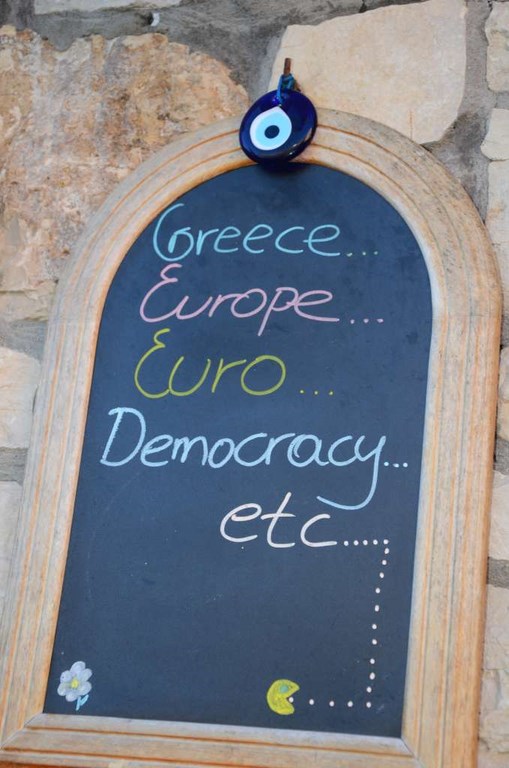 Greece...
Europe...
Euro...
Democracy...
etc......